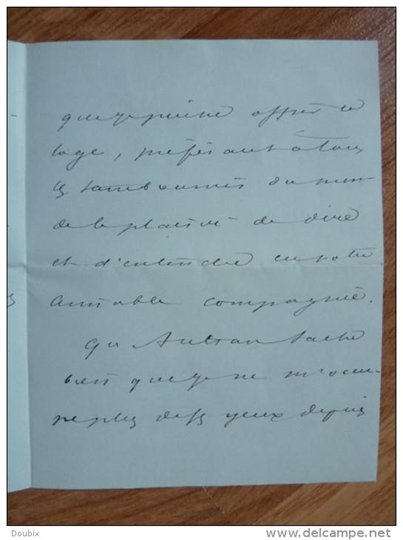 que je puisse offrir ce
gage, préférant à tous
les tambourins du monde
le plaisir de dîner
et d'entendre en votre
aimable compagnie.
Qu'Autran sache
bien que je ne m'occupe
plus des yeux depuis
Doubix
www.delcampe.net